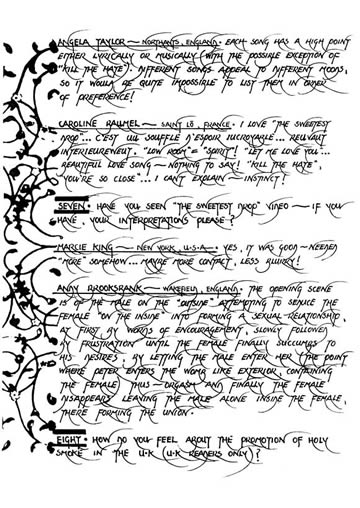 ANGELA TAYLOR — NORTHANTS, ENGLAND. EACH SONG HAS A HIGH POINT
EITHER LYRICALLY OR MUSICALLY (WITH THE POSSIBLE EXCEPTION OF
"KILL THE HATE). DIFFERENT SONGS APPEAL TO DIFFERENT MOODS,
SO IT WOULD BE QUITE IMPOSSIBLE TO LIST THEM IN ORDER
OF PREFERENCE!
CAROLINE SAINT LÔ, FRANCE. I LOVE "THE SWEETEST
DROP"... C'EST SOUFFLE D'ESPOIR
"LOW ROOM" = "SPIRIT"! "LET ME LOVE YOU"...
BEAUTIFUL LOVE SONG — NOTHING TO SAY! "KILL THE HATE",
"YOU'RE SO CLOSE"... I CAN'T EXPLAIN — INSTINCT!
SEVEN. HAVE YOU SEEN "THE SWEETEST DROP" VIDEO — IF YOU
HAVE, YOUR INTERPRETATIONS PLEASE?
MARCIE KING — NEW YORK, U.S.A. — YES, IT WAS GOOD — NEEDED
"MORE" SOMEHOW... MAYBE MORE CONTACT, LESS BLURRY!
ANDY BROOKSBANK — WAKEFIELD, ENGLAND. THE OPENING SCENE
IS OF THE MALE ON THE "OUTSIDE" ATTEMPTING TO SEDUCE THE
FEMALE "ON THE INSIDE" INTO FORMING A SEXUAL RELATIONSHIP,
AT FIRST BY WORDS OF ENCOURAGEMENT, SLOWLY FOLLOWED
BY FRUSTRATION UNTIL THE FEMALE FINALLY SUCCUMBS TO
HIS DESIRES. BY LETTING THE MALE ENTER HER (THE POINT
WHERE PETER ENTERS THE WOMB LIKE EXTERIOR, CONTAINING
THE FEMALE) THUS — ORGASM AND FINALLY THE FEMALE
DISAPPEARS LEAVING THE MALE ALONE INSIDE THE FEMALE,
THERE FORMING THE UNION.
EIGHT. HOW DO YOU FEEL ABOUT THE PROMOTION OF HOLY
SMOKE IN THE U.K (U.K READERS ONLY)?